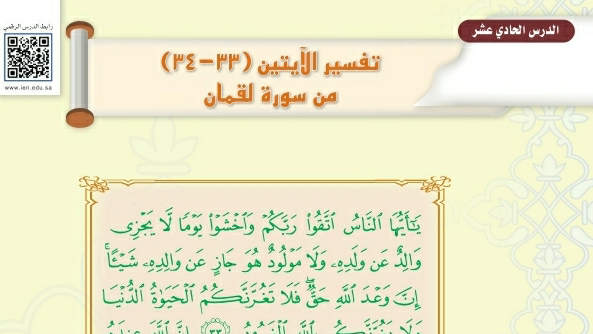 رابط الدرس الرقمي
www.ien.edu.sa
الدرس الحادي عشر
تفسير الآيتين (٣٣-٣٤)
من سورة لقمان
يَٰٓأَيُّهَا ٱلنَّاسُ ٱتَّقُواْ رَبَّكُمۡ وَٱخۡشَوۡاْ يَوۡمٗا لَّا يَجۡزِي
وَالِدٌ عَن وَلَدِهِۦ وَلَا مَوۡلُودٌ هُوَ جَازٍ عَن وَالِدِهِۦ شَيۡـًٔاۚ
إِنَّ وَعۡدَ ٱللَّهِ حَقّٞۖ فَلَا تَغُرَّنَّكُمُ ٱلۡحَيَوٰةُ ٱلدُّنۡيَا